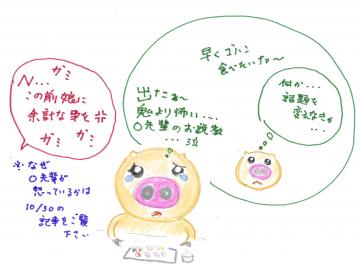 ガミ
N...
この前娘に
余計な事を
ガミ
ガミ
※なぜ
O先輩が
怒っているかは
10/30の
記事をご覧
下さい
出たぁ〜
鬼より怖い...
O先輩のお説教
...泣
早くゴハン
食べたいなぁ〜
何か...
話題を
変えなきゃ
...